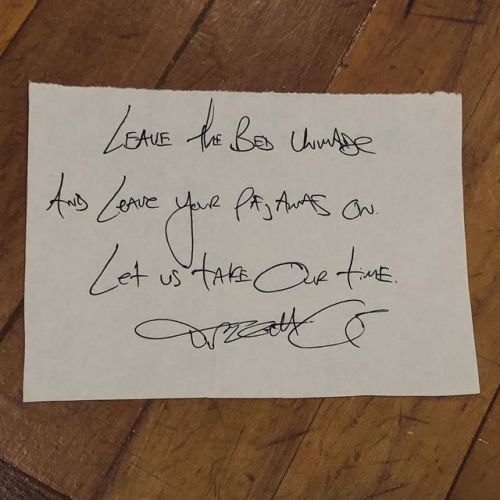 Leave the Bed Unmade
And Leave your Pajamas on.
Let us take Our time.